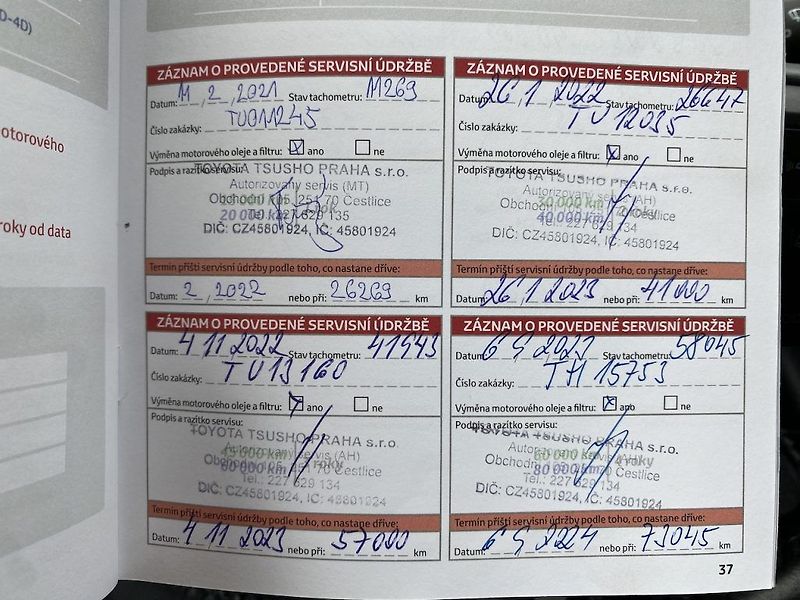 D-4D)
otorového
roky od data
ZÁZNAM O PROVEDENÉ SERVISNÍ ÚDRŽBĚ
Datum: 11 2 2021 Stav tachometru: 11269
Číslo zakázky: TU011245
Výměna motorového oleje a filtru: X ano ne
Podpis a razítko servisu:
TOYOTA TSUSHO PRAHA s.r.o.
Autorizovaný servis (MT)
Obchodní 105, 251 70 Čestlice
20 000 km Tel.: 227 629 135
DIČ: CZ45801924, IČ: 45801924
Termín příští servisní údržby podle toho, co nastane dříve:
Datum: 2, 2022 nebo při: 26269 km
ZÁZNAM O PROVEDENÉ SERVISNÍ ÚDRŽBĚ
Datum: 26, 1 2022 Stav tachometru: 26647
Číslo zakázky: TU 12035
Výměna motorového oleje a filtru: X ano ne
Podpis a razítko servisu:
TOYOTA TSUSHO PRAHA s.r.o.
Autorizovaný servis (AH)
30 000 km
40 000 km 2 roky Čestlice
Tel.: 227 629 134
DIČ: CZ45801924, IČ: 45801924
Termín příští servisní údržby podle toho, co nastane dříve:
Datum: 26, 1 2023 nebo při: 41000 km
ZÁZNAM O PROVEDENÉ SERVISNÍ ÚDRŽBĚ
Datum: 4 11 2022 Stav tachometru: 41943
Číslo zakázky: TU 13160
Výměna motorového oleje a filtru: X ano ne
Podpis a razítko servisu:
TOYOTA TSUSHO PRAHA s.r.o.
Autorizovaný servis (AH)
45 000 km
60 000 km roky Čestlice
Tel.: 227 629 134
DIČ: CZ45801924, IČ: 45801924
Termín příští servisní údržby podle toho, co nastane dříve:
Datum: 4 11 2023 nebo při: 57000 km
ZÁZNAM O PROVEDENÉ SERVISNÍ ÚDRŽBĚ
Datum: 6 9 2023 Stav tachometru: 58045
Číslo zakázky: TH 15753
Výměna motorového oleje a filtru: X ano ne
Podpis a razítko servisu:
TOYOTA TSUSHO PRAHA s.r.o.
Autorizovaný servis (AH)
60 000 km
80 000 km 4 roky Čestlice
Tel.: 227 629 134
DIČ: CZ45801924, IČ: 45801924
Termín příští servisní údržby podle toho, co nastane dříve:
Datum: 6 9 2024 nebo při: 73045 km
37